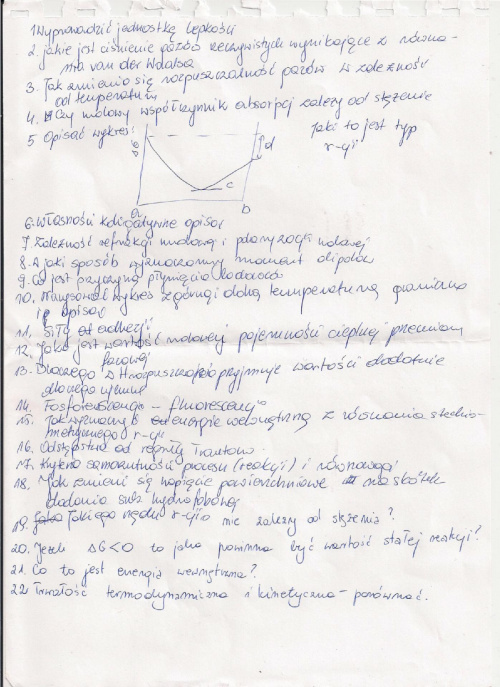 1. Wyprowadzić jednostkę lepkości
2. jakie jest ciśnienie gazów rzeczywistych wynikające z równa-
nia van der Waalsa
3. Jak zmienia się rozpuszczalność gazów w zależności
od temperatury
4. Czy molowy współczynnik absorpcji zależy od stężenia
5 Opisać wykres
Jaki to jest typ
r-cji
d
c
a
b
6. Własności koligatywne opisać
7. Zależność refrakcji molowej i polaryzacji molowej
8. W jaki sposób wyznaczamy moment dipolowy
9. Co jest przyczyną płynięcia
10. Narysować wykres z górną i dolną temperaturą graniczną
i opisać
11. Siły adhezji
12. Jaka jest wartość molowej pojemności cieplnej przemiany
fazowej
13. Dlaczego ΔH rozpuszczania przyjmuje wartości dodatnie
dlaczego ujemne
14. Fosforescencja - fluorescencja
15. Jak wyznaczyć energię wewnętrzną z równania stechio-
metrycznego r-cji
16. Odstępstwa od reguły Troutona
17. Kryteria samorzutności procesu (reakcji) i równowagi
18. Jak zmieni się napięcie powierzchniowe na skutek
dodania sub. hydrofobowej
19. Jakiego rzędu r-cja nie zależy od stężenia?
20. Jeżeli ΔG<0 to jaka powinna być wartość stałej reakcji?
21. Co to jest energia wewnętrzna?
22. Trwałość termodynamiczna i kinetyczna - porównać.